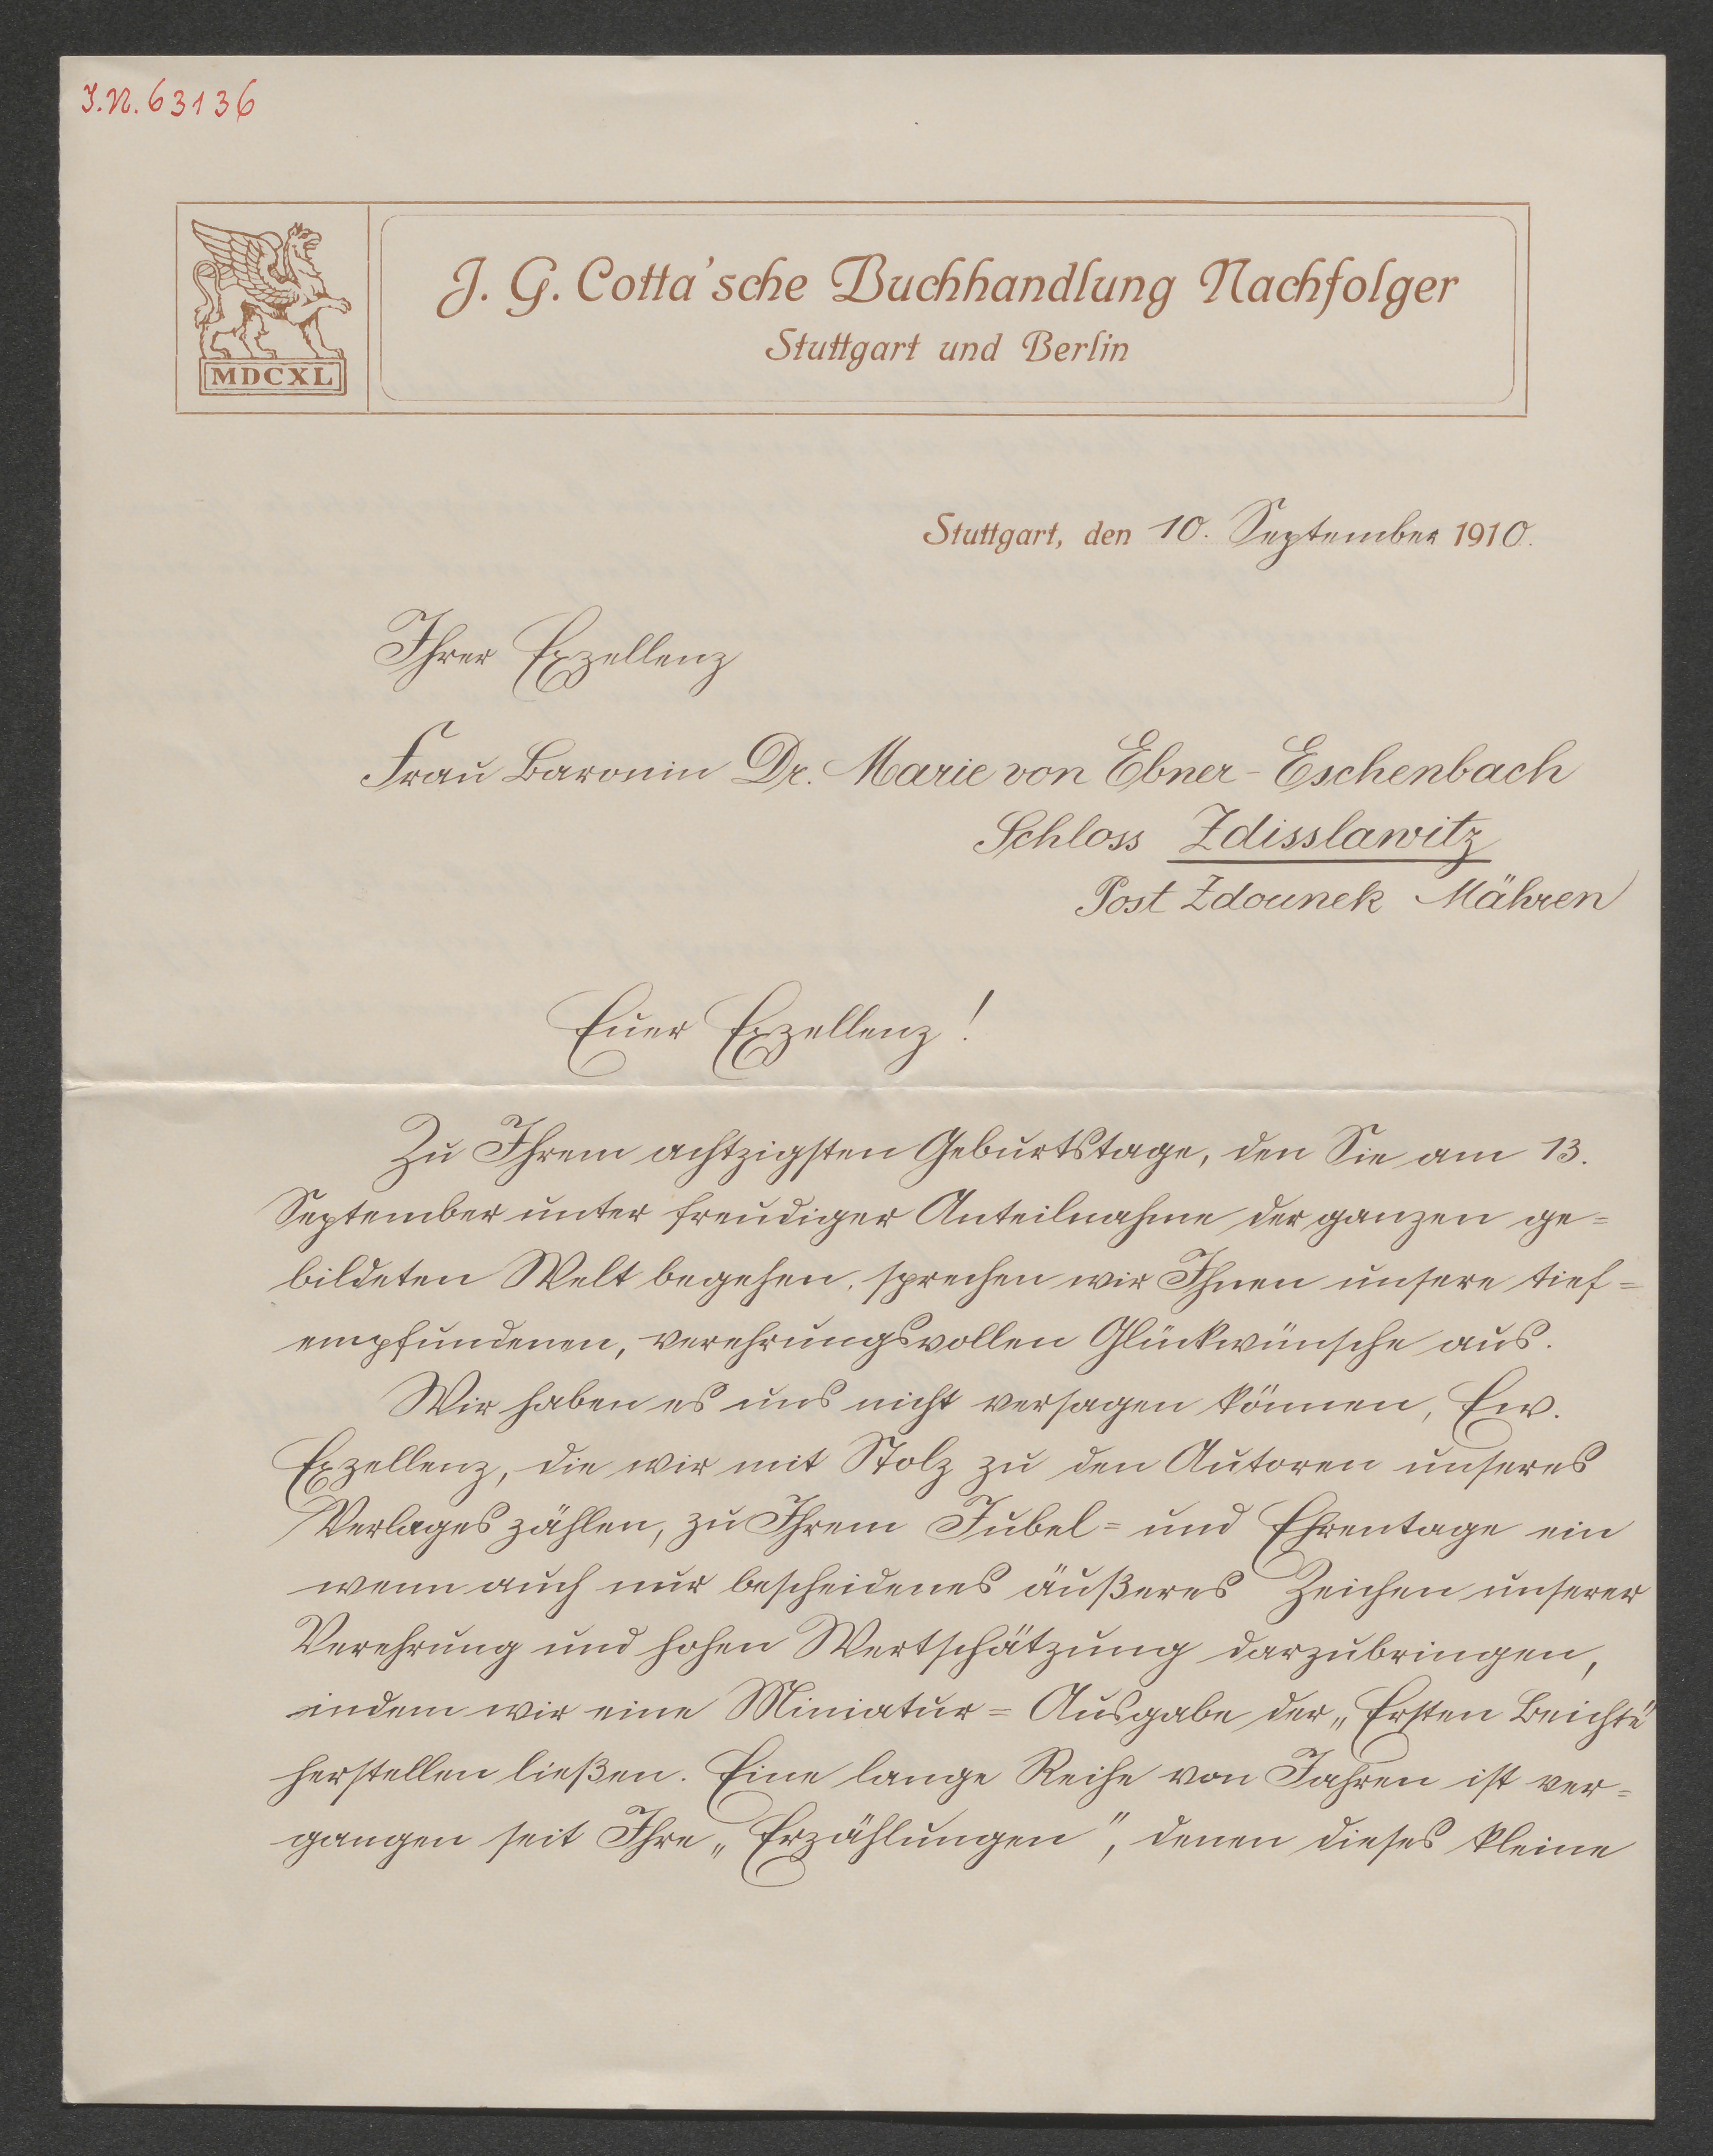 I.N. 63136
J. G. Cotta'sche Buchhandlung Nachfolger
Stuttgart und Berlin
MDCXL
Stuttgart, den 10. September 1910.
Ihrer Exzellenz
Frau Baronin Dr. Marie von Ebner-Eschenbach
Schloss Zdisslawitz
Post Zdounek Mähren
Euer Exzellenz!
Zu Ihrem achtzigsten Geburtstage, den Sie am 13.
September unter freudiger Anteilnahme der ganzen ge=
bildeten Welt begehen, sprechen wir Ihnen unsere tief=
empfundenen, verehrungsvollen Glückwünsche aus.
Wir haben es uns nicht versagen können, Ew.
Exzellenz, die wir mit Stolz zu den Autoren unseres
Verlages zählen, zu Ihrem Jubel= und Ehrentage ein
wenn auch nur bescheidenes äußeres Zeichen unserer
Verehrung und hohen Wertschätzung darzubringen,
indem wir eine Miniatur=Ausgabe der „Ersten Beichte"
herstellen ließen. Eine lange Reihe von Jahren ist ver=
gangen seit Ihre „Erzählungen", denen dieses kleine